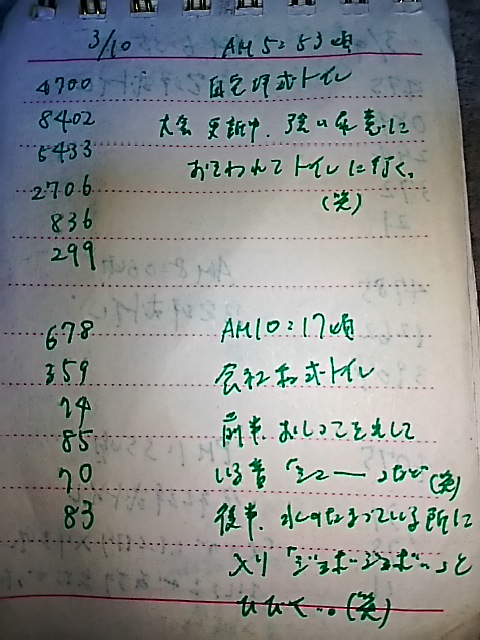 3/10 AM5:53頃
4700 自宅洋式トイレ
8402 大会更新中、強い尿意に
5433 おそわれてトイレに行く。
2706 (笑)
836
299
678 AM10:17頃
359 会社和式トイレ
74 前半、おしっこをして
85 いる音「シュー──」など(笑)
70 後半、水のたまっている所に
83 入り「ジョボジョボ…」と
ひびく…(笑)